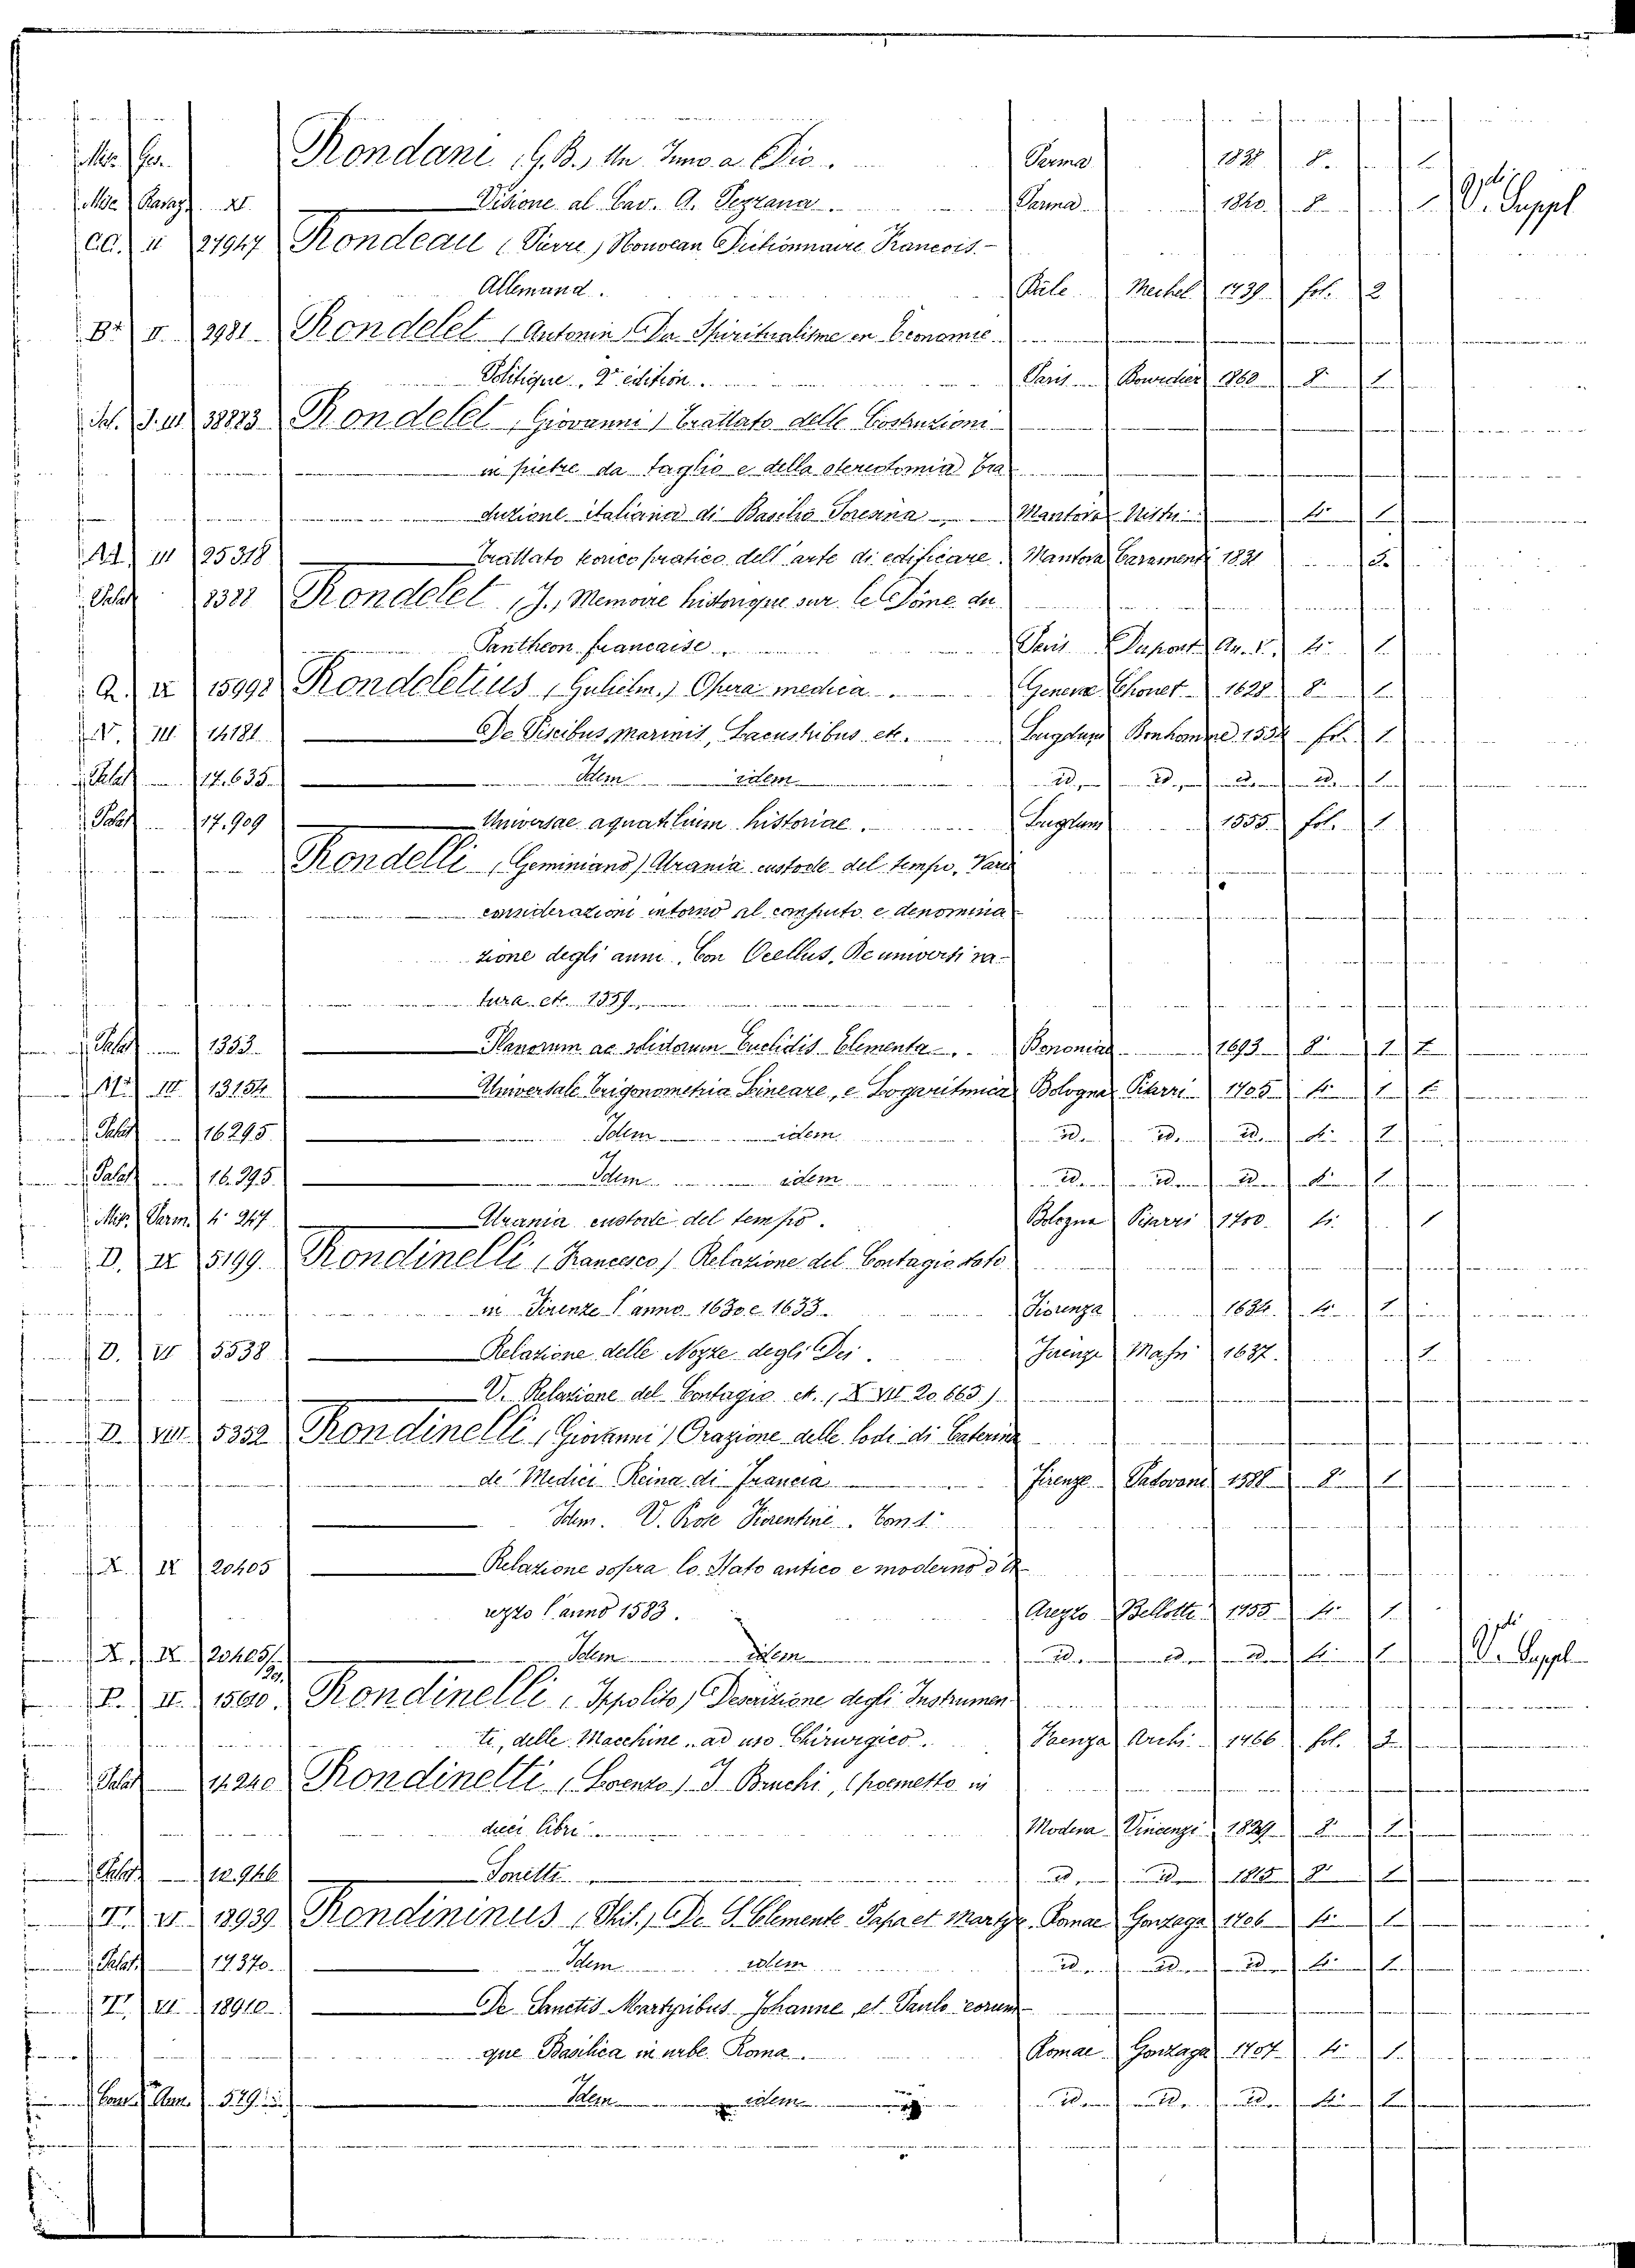 Rondani (G. B.) Un Inno a Dio. Parma 1838 8. 1
Visione al Cav. A. Pezzana. Parma 1840. 8. 1 V. Suppl
CC. II 27947 Rondeau (Pierre) Nouveau Dictionnaire Francois-
Allemand. Bâle Mechel 1739. fol. 2
II. 2981. Rondelet (Antonin) Du Spiritualisme en Economie
Politique. 2e edition. Paris 1860 8. 1
38823 Rondelet (Giovanni) Trattato delle Costruzioni
in pietre da taglio e della stereotomia Tra
duzione italiana di Basilio Soresina Mantova 4. 1
III 25318 Trattato teorico pratico dell' arte di edificare. Mantova Caramenti 1831 5.
Palat Rondelet (J.) Memoire historique sur le Dôme du
Pantheon francaise Paris Dupont An. V. 4. 1
Q. IX 15998 Rondeletius (Gulielm.) Opera medica. Genevae Chouet 1628. 8. 1
V. III. 14181. De Piscibus marinis, Lacustribus etc. Lugduni Bonhomme 1554 fol. 1
Palat 17.635. Idem idem id. id. id. id. 1
Palat 17.909 Universae aquatilium historiae. Lugduni 1555. fol. 1
Rondelli (Geminiano) Urania custode del tempo. Varie
considerazioni intorno al computo e denomina
zione degli anni. Con Ocellus. De universi na-
tura etc. 1559.
Palat 1353. Planorum ac solidorum Euclidis Elementa. Bononiae 1693 8. 1
13154. Universale Trigonometria Lineare, e Logaritmica Bologna Pisarri 1705 4. 1
Palat 16295. Idem idem id. id. id. 4. 1
Palat 16.295. Idem idem id. id. id. 4. 1
Misc. Parm. 4. 247. Urania custode del tempo. Bologna Pisarri 1700. 4. 1
D. IX 5199. Rondinelli (Francesco) Relazione del Contagio stato
in Firenze l'anno 1630 e 1633. Fiorenza 1634. 4. 1
D. IV 5538 Relazione delle Nozze degli Dei. Firenze Massi 1637. 1
V. Relazione del Contagio etc. (X. VII 20.663)
D. VIII. 5352 Rondinelli (Giovanni) Orazione delle lodi di Caterina
de' Medici Reina di Francia Firenze Padovani 1588 8. 1
Idem. V. Prose Fiorentine. Tom. 1.
X. IX 20405 Relazione sopra lo Stato antico e moderno d'A-
rezzo l'anno 1583. Arezzo Bellotti 1755 4. 1
X. IX. 20405 Idem idem id. id. id. 4. 1 V. Suppl
P. II. Rondinelli (Ippolito) Descrizione degli Instrumen
ti, delle Macchine.. ad uso Chirurgico. Faenza Archi 1766 fol. 2
Palat 14.240 Rondinetti (Lorenzo) I Bruchi, (poemetto in
dieci libri Modena Vincenzi 1829 8. 1
Palat 12.946 Sonetti id. id. 1815 8. 1
T. VI 18939 Rondininus (Phil.) De S. Clemente Papa et Martyre Romae Gonzaga 1706 4. 1
Palat. 17370. Idem idem id. id. id. 4. 1
T. VI. 18910. De Sanctis Martyribus Johanne et Paulo eorum
que Basilica in urbe Roma. Romae Gonzaga 1707. 4. 1
579. Idem idem id. id. id. 4. 1